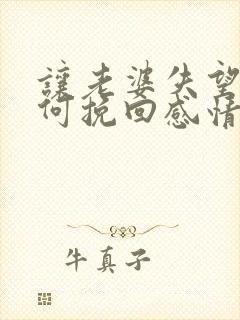 讓老婆失望
何挽回感情
牛真子